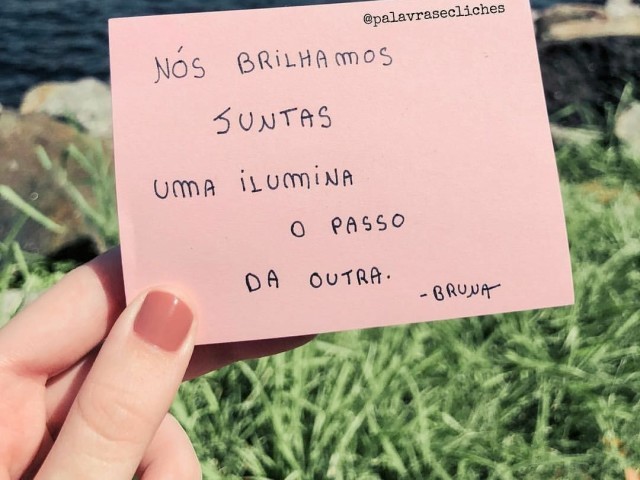 @palavrasecliches
NÓS BRILHAMOS
JUNTAS
UMA ILUMINA
O PASSO
DA OUTRA.
-BRUNA